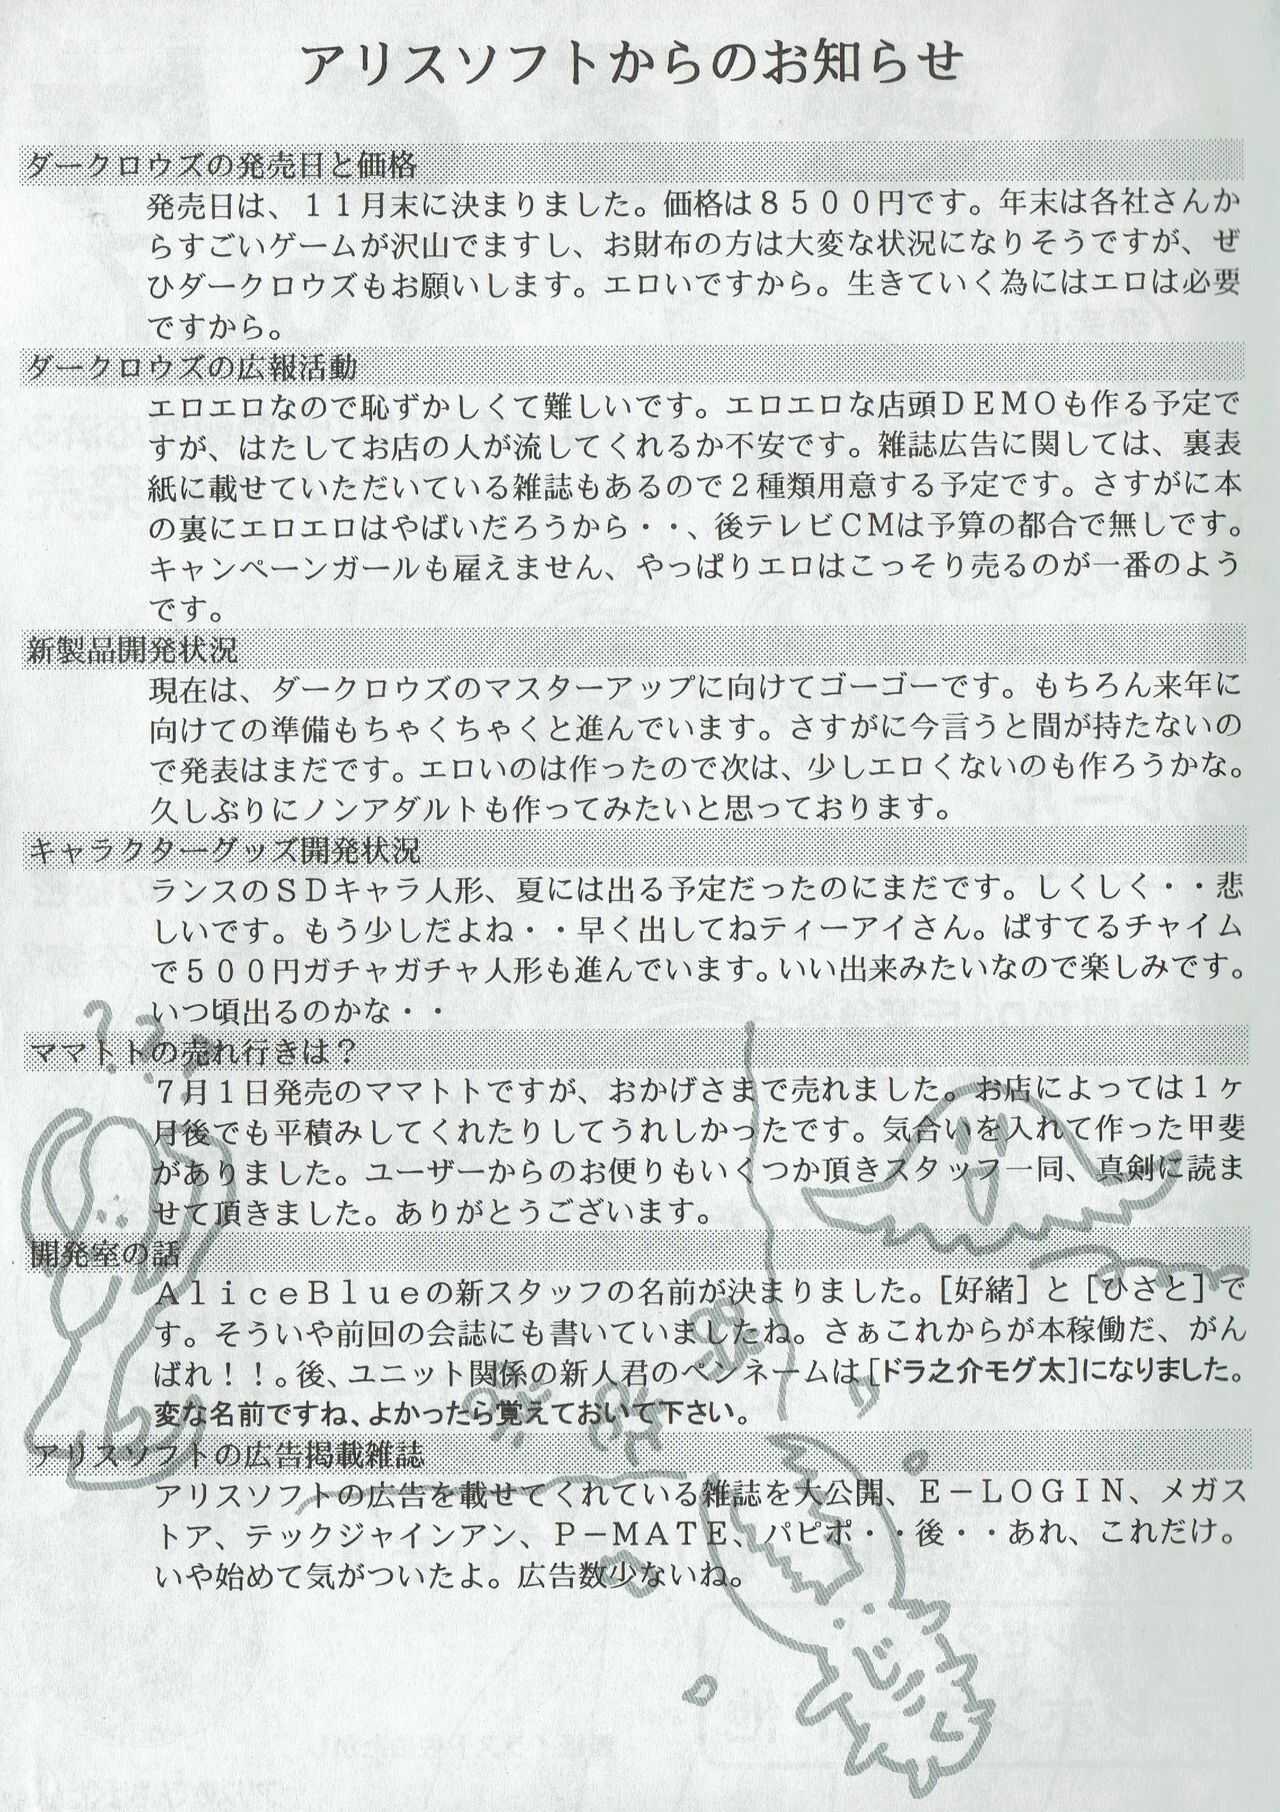 アリスソフトからのお知らせ
ダークロウズの発売日と価格
発売日は、１１月末に決まりました。価格は８５００円です。年末は各社さんか
らすごいゲームが沢山でますし、お財布の方は大変な状況になりそうですが、ぜ
ひダークロウズもお願いします。エロいですから。生きていく為にはエロは必要
ですから。
ダークロウズの広報活動
エロエロなので恥ずかしくて難しいです。エロエロな店頭ＤＥＭＯも作る予定で
すが、はたしてお店の人が流してくれるか不安です。雑誌広告に関しては、裏表
紙に載せていただいている雑誌もあるので２種類用意する予定です。さすがに本
の裏にエロエロはやばいだろうから・・、後テレビＣＭは予算の都合で無しです。
キャンペーンガールも雇えません、やっぱりエロはこっそり売るのが一番のよう
です。
新製品開発状況
現在は、ダークロウズのマスターアップに向けてゴーゴーです。もちろん来年に
向けての準備もちゃくちゃくと進んでいます。さすがに今言うと間が持たないの
で発表はまだです。エロいのは作ったので次は、少しエロくないのも作ろうかな。
久しぶりにノンアダルトも作ってみたいと思っております。
キャラクターグッズ開発状況
ランスのＳＤキャラ人形、夏には出る予定だったのにまだです。しくしく・・悲
しいです。もう少しだよね・・早く出してねティーアイさん。ぱすてるチャイム
で５００円ガチャガチャ人形も進んでいます。いい出来みたいなので楽しみです。
いつ頃出るのかな・・
ママトトの売れ行きは？
７月１日発売のママトトですが、おかげさまで売れました。お店によっては１ヶ
月後でも平積みしてくれたりしてうれしかったです。気合いを入れて作った甲斐
がありました。ユーザーからのお便りもいくつか頂きスタッフ一同、真剣に読ま
せて頂きました。ありがとうございます。
開発室の話
ＡｌｉｃｅＢｌｕｅの新スタッフの名前が決まりました。［好緒］と［ひさと］で
す。そういや前回の会誌にも書いていましたね。さぁこれからが本稼働だ、がん
ばれ！！。後、ユニット関係の新人君のペンネームは［ドラ之介モグ太］になりました。
変な名前ですね、よかったら覚えておいて下さい。
アリスソフトの広告掲載雑誌
アリスソフトの広告を載せてくれている雑誌を大公開、Ｅ－ＬＯＧＩＮ、メガス
トア、テックジャインアン、Ｐ－ＭＡＴＥ、パピポ・・後・・あれ、これだけ。
いや始めて気がついたよ。広告数少ないね。